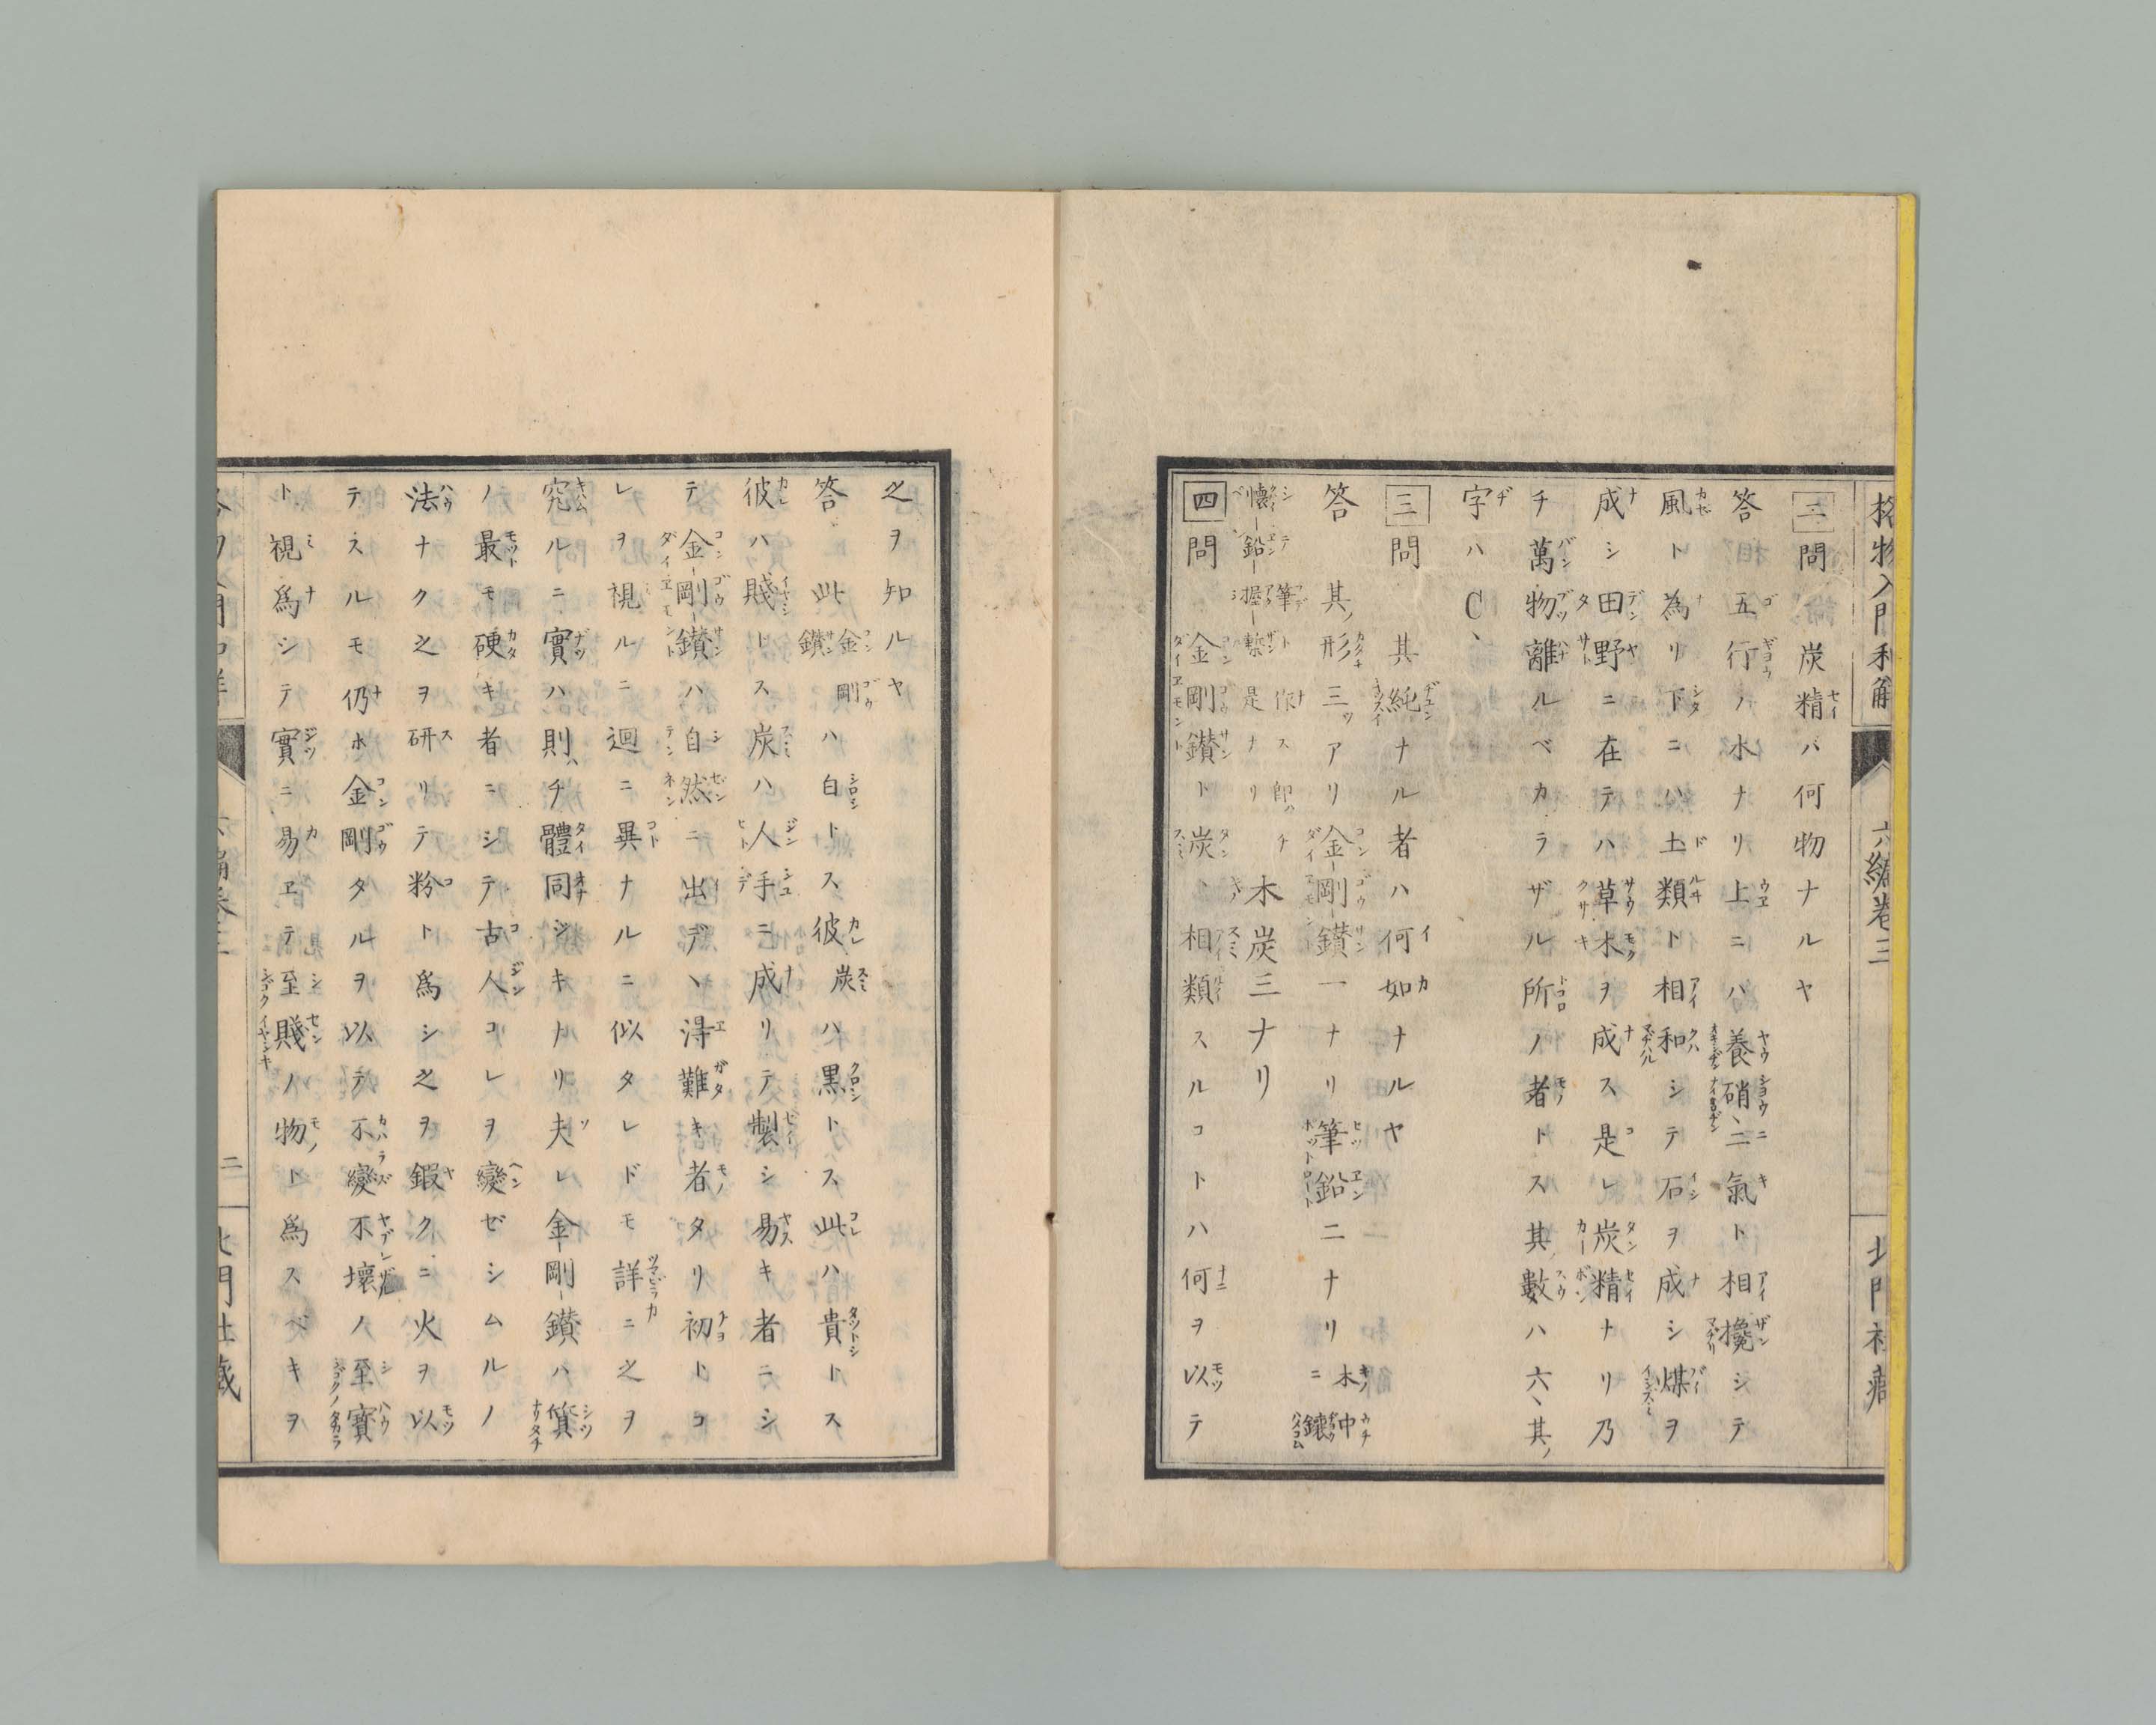 格物入門和解 六編卷三 北門社藏
二 問 炭精バ何物ナルヤ
答 五行ノ水ナリ上ニハ養硝ヽ二氣ト相攙シテ
風ト為リ下ニハ土類ト相和シテ石ヲ成シ煤ヲ
成シ田野ニ在テハ草木ヲ成ス是レ炭精ナリ乃
チ萬物離ルベカラザル所ノ者トス其ノ數ハ六、其ノ
字ハC、
三 問 其純ナル者ハ何如ナルヤ
答 其ノ形三ツアリ金剛鑚一ナリ筆鉛二ナリ木中ニ鑲
シテ筆ト作ス即ハチ懷鉛握槧是ナリ 木炭三ナリ
四 問 金剛鑚ト炭ヽ相類スルコトハ何ヲ以テ
之ヲ知ルヤ
答 此金剛鑚ハ白トス彼炭ハ黒トス此ハ貴トス
彼ハ賤トス炭ハ人手ニ成リテ製シ易キ者ニシ
テ金剛鑚ハ自然ニ出デヽ得難キ者タリ初トコ
レヲ視ルニ迥ニ異ナルニ似タレドモ詳ニ之ヲ
究ルニ實ハ則ハチ體同シキナリ夫レ金剛鑚ハ質
ノ最モ硬キ者ニシテ古人コレヲ變ゼシムルノ
法ナク之ヲ研リテ粉ト爲シ之ヲ鍜クニ火ヲ以
テスルモ仍ホ金剛タルヲ以テ不變不壞ノ至寳
ト視爲シテ實ニ易ヱテ至賤ノ物ト爲スベキヲ